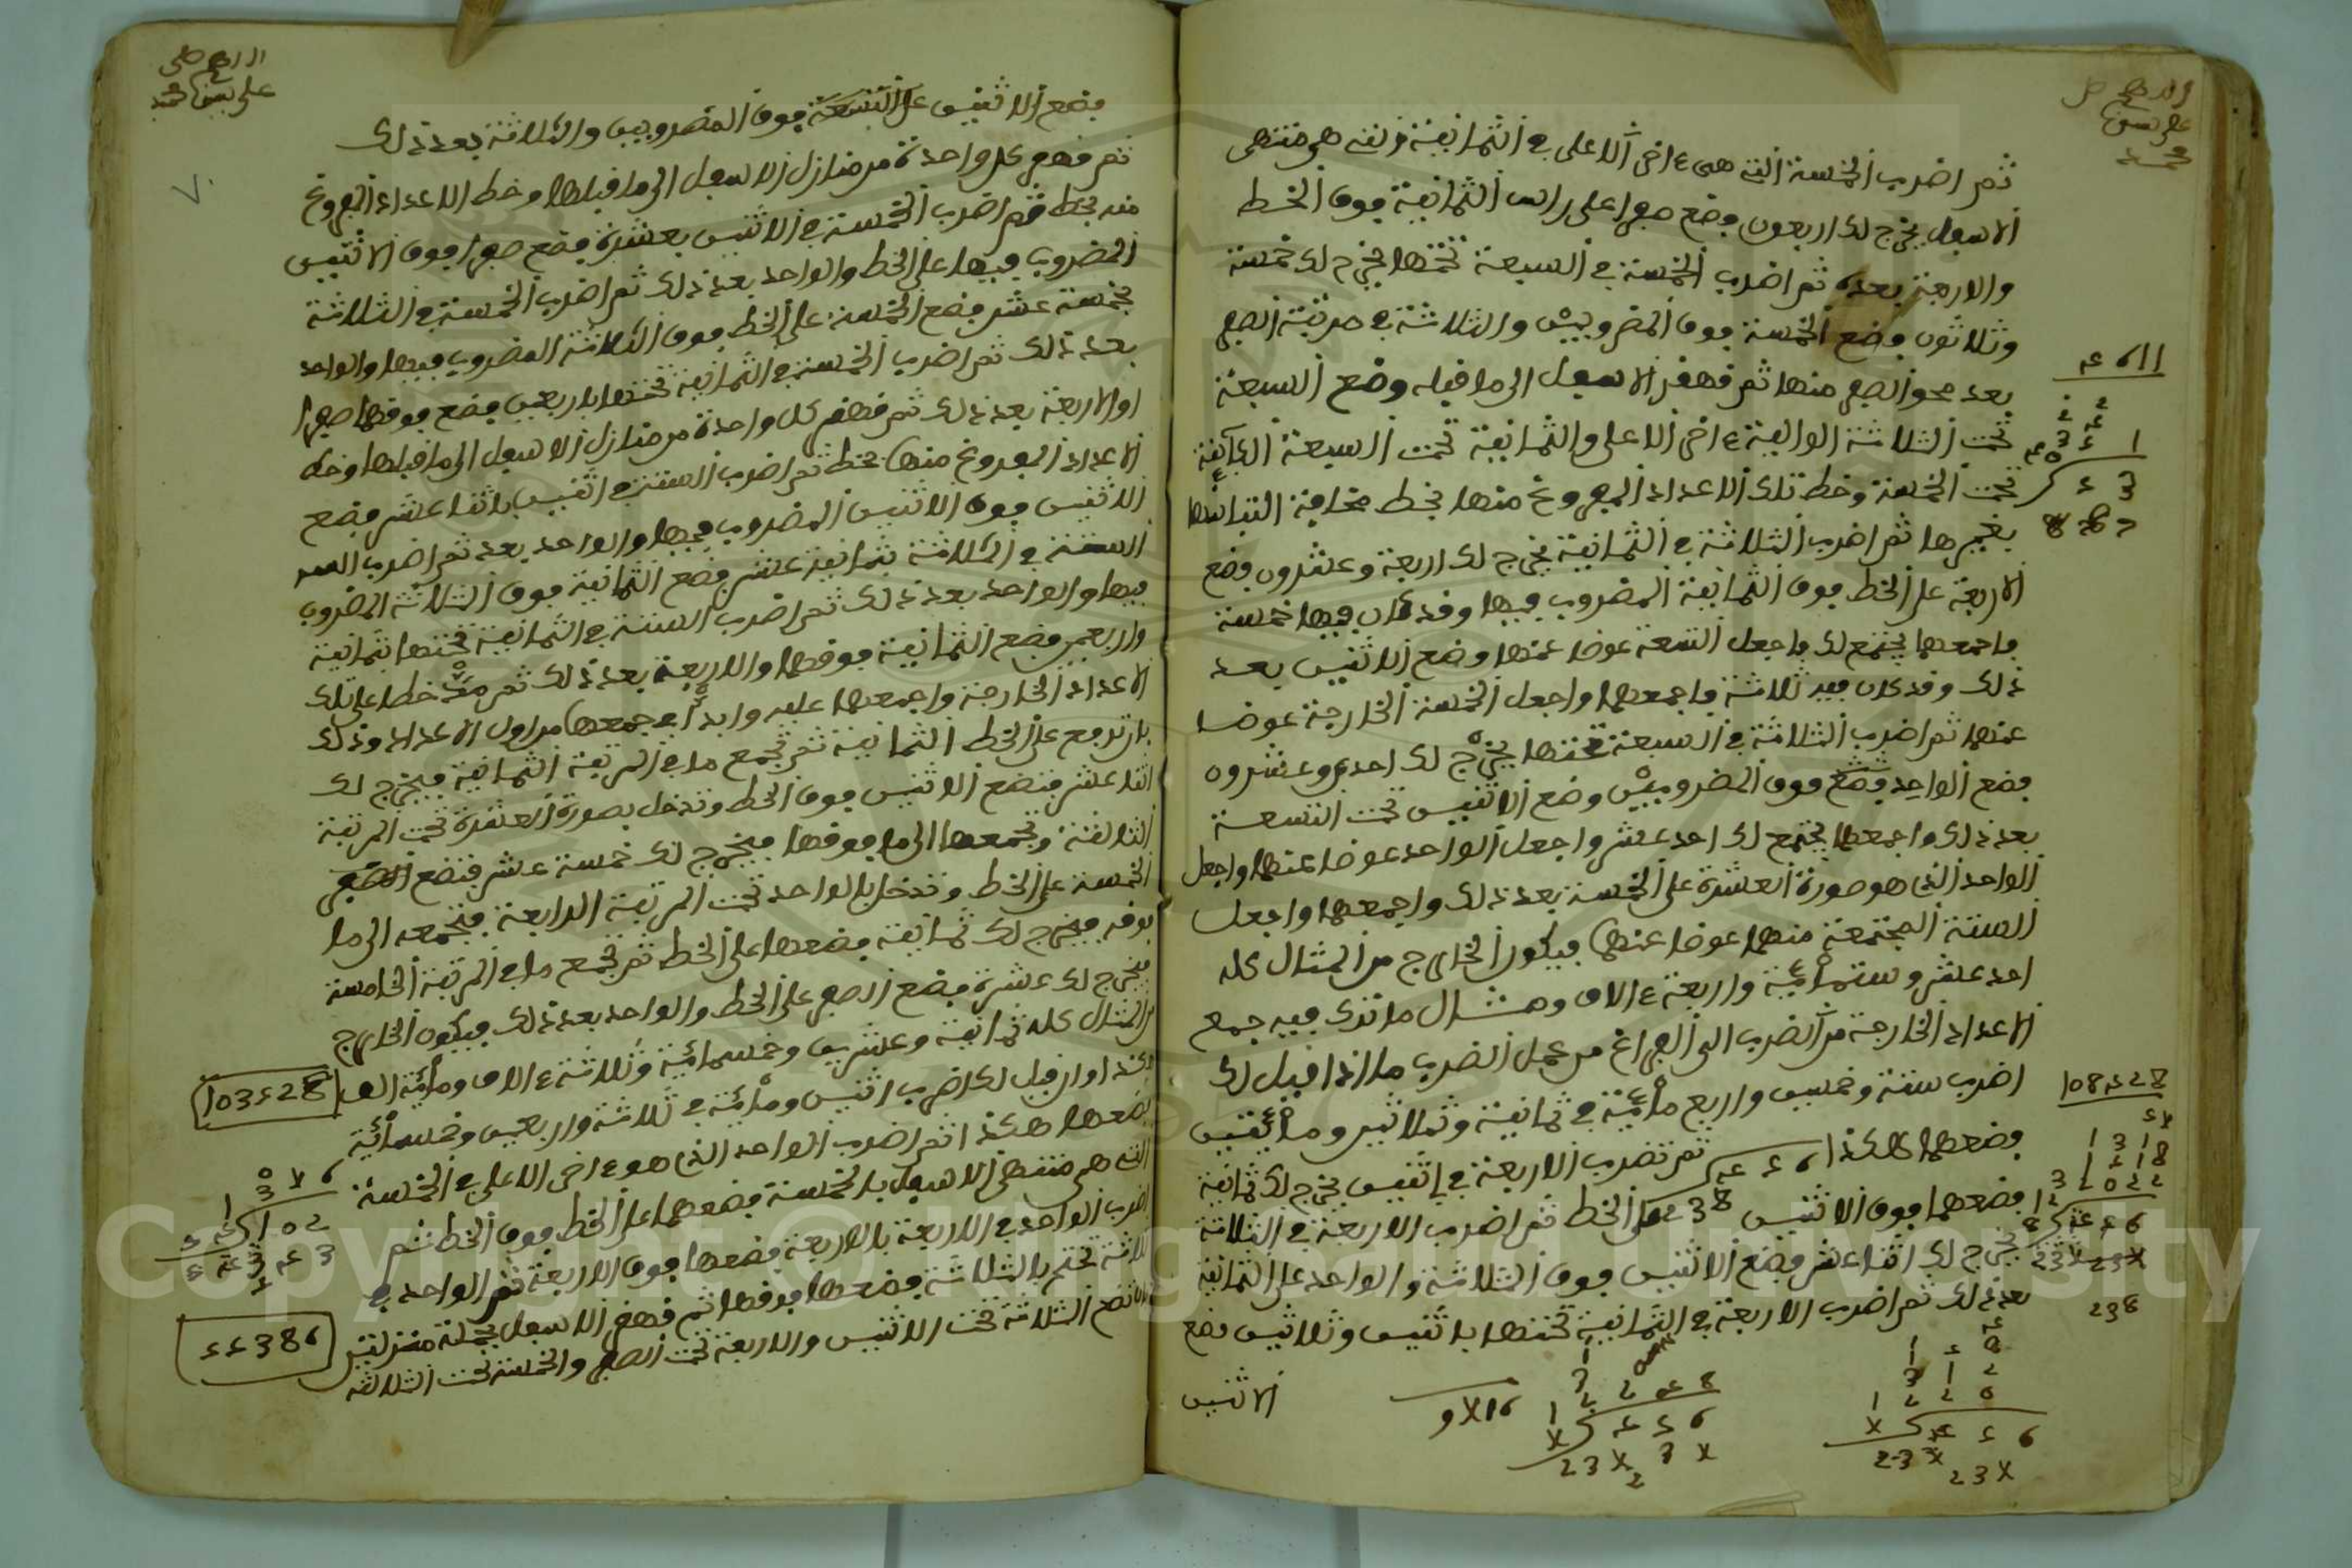 ثم اضرب الخمسة التي هي ءاخر الاعلى في الثمانية التي هي منتهى
الاسفل يخرج لك اربعون فضع صفرا على راس الثمانية فوق الخط
والاربعة بعده ثم اضرب الخمسة في السبعة تحتها يخرج لك خمسة
وثلاثون فضع الخمسة فوق المضروبين والثلاثة في مرتبة الصفر
بعد محو الصفر منها ثم قهقر الاسفل الى ما قبله وضع السبعة
تحت الثلاثة الوالية ءاخر الاعلى والثمانية تحت السبعة الكائنة
تحت الخمسة وخط تلك الاعداد المفروغ منها بخط مخافة التباسها
بغيرها ثم اضرب الثلاثة في الثمانية يخرج لك اربعة وعشرون فضع
الاربعة على الخط فوق الثمانية المضروب فيها وقد كان فيها خمسة
فاجمعها يجتمع لك فاجعل التسعة عوضا عنها وضع الاثنين بعد
ذلك وقد كان فيه ثلاثة فاجمعها واجعل الخمسة الخارجة عوضا
عنها ثم اضرب الثلاثة في السبعة تحتها يخرج لك احد وعشرون
فضع الواحد فوق المضروبين وضع الاثنين تحت التسعة
بعد ذلك واجمعها يجتمع لك احد عشر واجعل الواحد عوضا عنها واجعل
الواحد الذي هو صورة العشرة على الخمسة بعد ذلك واجمعها واجعل
الستة المجتمعة منها عوضا عنها فيكون الخارج من المثال كله
احد عشر وستمائة واربعة ءالاف ومثال ما ترى فيه جمع
الاعداد الخارجة من الضرب الى الفراغ من عمل الضرب ما اذا قيل لك
اضرب ستة وخمسين واربع مائة في ثمانية وثلاثين ومائتين
فضعها هكذا ثم تضرب الاربعة في اثنين يخرج لك ثمانية
فضعها فوق الاثنين 238 على الخط ثم اضرب الاربعة في الثلاثة
يخرج لك اثنا عشر فضع الاثنين فوق الثلاثة والواحد على الثمانية
بعد ذلك ثم اضرب الاربعة في الثمانية تحتها باثنين وثلاثين فضع
الاثنين
فضع الاثنين على التسعة فوق المضروبين والثلاثة بعد ذلك
ثم قهقر كل واحدة من منازل الاسفل الى ما قبلها وخط الاعداد المفروغ
منه بخط ثم اضرب الخمسة في الاثنين بعشرة فضع صفرا فوق الاثنين
المضروب فيها على الخط والواحد بعد ذلك ثم اضرب الخمسة في الثلاثة
بخمسة عشر فضع الخمسة على الخط فوق الثلاثة المضروب فيها والواحد
بعد ذلك ثم اضرب الخمسة في الثمانية تحتها باربعين فضع فوقها صفرا
والاربعة بعد ذلك ثم قهقر كل واحدة من منازل الاسفل الى ما قبلها وخط
الاعداد المفروغ منها بخط ثم اضرب الستة في اثنين باثنا عشر فضع
الاثنين فوق الاثنين المضروب فيها والواحد بعد ثم اضرب
الستة في الثلاثة بثمانية عشر فضع الثمانية فوق الثلاثة المضروب
فيها والواحد بعد ذلك ثم اضرب الستة في الثمانية تحتها بثمانية
واربعين فضع الثمانية فوقها والاربعة بعد ذلك ثم مد خطا على تلك
الاعداد الخارجة واجمعها عليه وابدأ في جمعها من اول الاعداد وذلك
بان ترفع على الخط الثمانية ثم تجمع ما في المرتبة الثانية فيخرج لك
اثنا عشر فتضع الاثنين فوق الخط وتدخل بصورة العشرة تحت المرتبة
الثالثة وتجمعها الى ما فوقها فيخرج لك خمسة عشر فتضع
الخمسة على الخط وتدخل بالواحد تحت المرتبة الرابعة فتجمعه الى ما
فوقه فيخرج لك ثمانية فضعها على الخط ثم تجمع ما في المرتبة الخامسة
فيخرج لك عشرة فضع الصفر على الخط والواحد بعد ذلك فيكون الخارج
من المثال كله ثمانية وعشرين وخمسمائة وثلاثة ءالاف ومائة الف
او ان قيل لك اضرب اثنين ومائة في ثلاثة واربعين وخمسمائة
فضعها هكذا ثم اضرب الواحد الذي هو ءاخر الاعلى في الخمسة
التي هي منتهى الاسفل بالخمسة فضعها على الخط فوق الخط ثم
اضرب الواحد في الاربعة بالاربعة فضعها فوق الاربعة ثم الواحد في
الثلاثة تختم بالثلاثة فضعها فوقها ثم قهقر الاسفل بجملة منزلتين
بان تضع الثلاثة تحت الاثنين والاربعة تحت الصفر والخمسة تحت الثلاثة